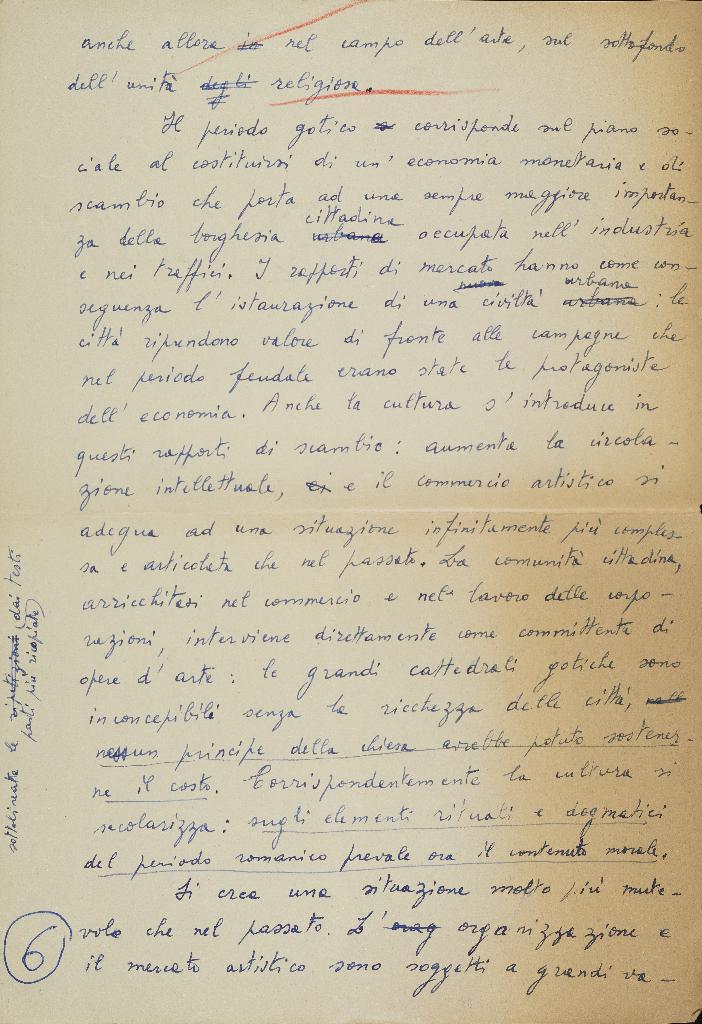 anche allora in nel campo dell'arte, sul sottofondo
dell'unità degli religiosa.
Il periodo gotico e corrisponde sul piano so-
ciale al costituirsi di un'economia monetaria e di
scambio che porta ad una sempre maggiore importan-
cittadina
za della borghesia urbana occupata nell'industria
e nei traffici. I rapporti di mercato hanno come con-
nuova urbana
seguenza l'istaurazione di una civiltà urbana: le
città riprendono valore di fronte alle campagne che
nel periodo feudale erano state le protagoniste
dell'economia. Anche la cultura s'introduce in
questi rapporti di scambio: aumenta la circola-
zione intellettuale, e il commercio artistico si
adegua ad una situazione infinitamente più comples-
sa e articolata che nel passato. La comunità cittadina,
arricchitasi nel commercio e nel lavoro delle corpo-
razioni, interviene direttamente come committente di
opere d'arte: le grandi cattedrali gotiche sono
inconcepibili senza la ricchezza delle città,
nessun principe della chiesa avrebbe potuto sostener-
ne il costo. Corrispondentemente la cultura si
secolarizza: sugli elementi rituali e dogmatici
del periodo romanico prevale ora il contenuto morale.
Si crea una situazione molto più mute-
vole che nel passato. L'orag organizzazione e
il mercato artistico sono soggetti a grandi va-
6
sottolineate le ripetizioni (dai testi
parti più ricopiate)